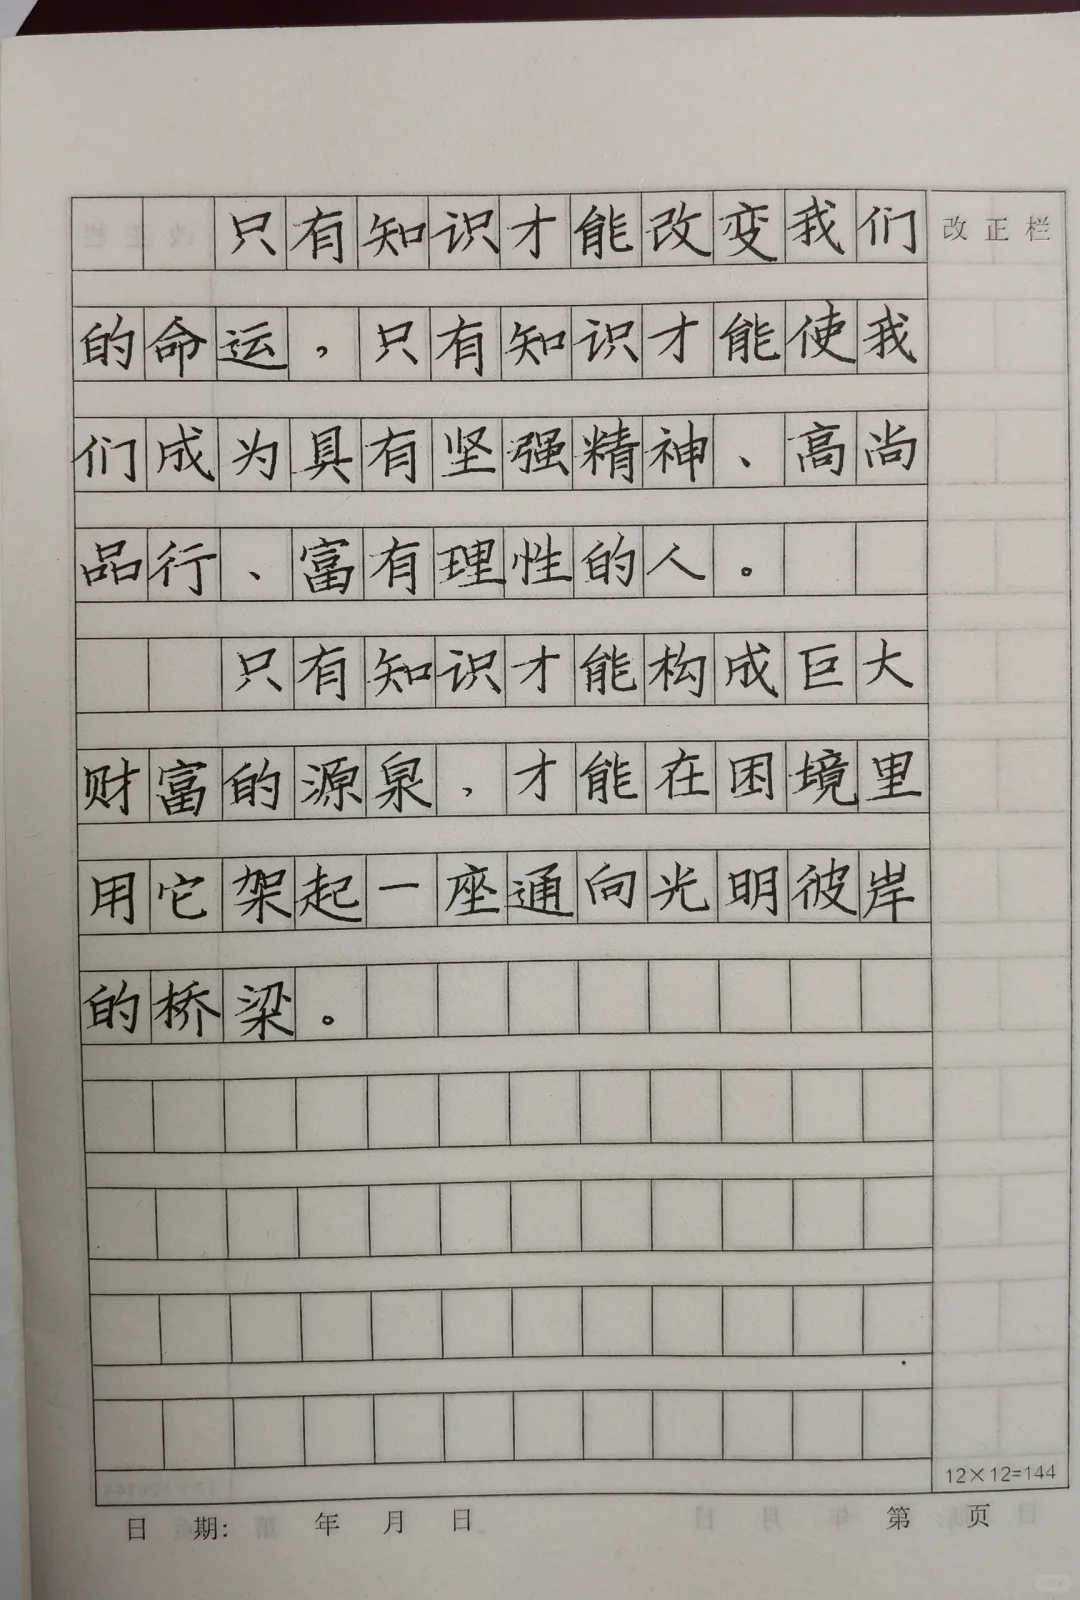 只有知识才能改变我们
改正栏
的命运，只有知识才能使我
们成为具有坚强精神、高尚
品行、富有理性的人。
只有知识才能构成巨大
财富的源泉，才能在困境里
用它架起一座通向光明彼岸
的桥梁。
12×12=144
日 期： 年 月 日 第 页